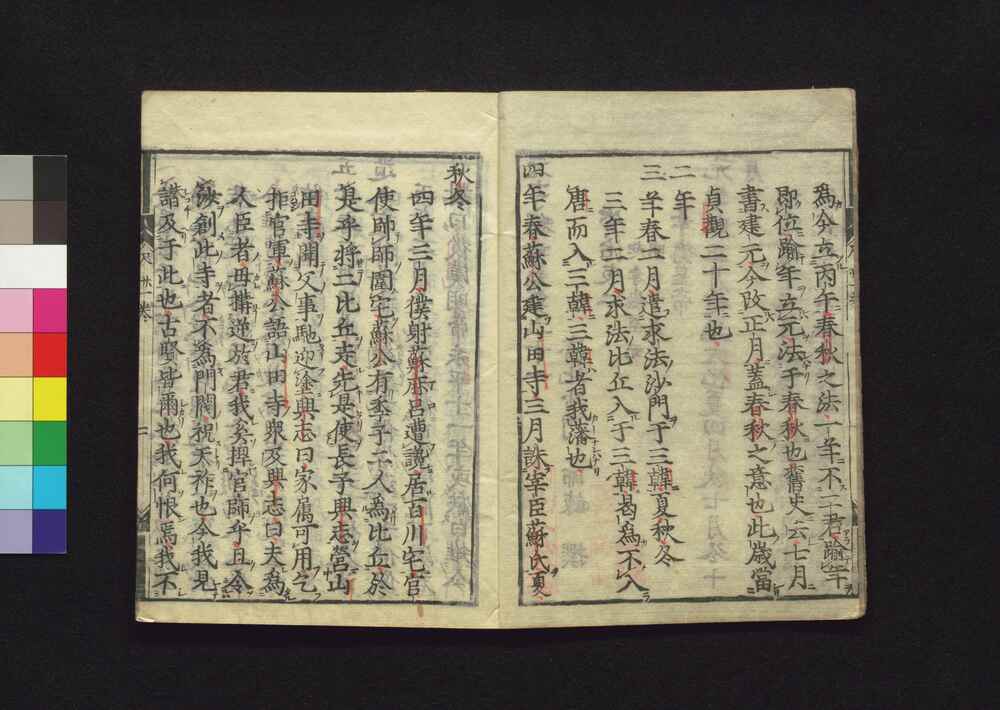 為今立丙午春秋之法一年不二君踰年
即位踰年立元法于春秋也舊史云七月
書建元今改正月蓋春秋之意也此歲當
貞觀二十年也
二年
三年春二月遣求法沙門于三韓夏秋冬
三年二月求法比丘入于三韓曷為不入
唐而入三韓三韓者我藩也
四年春蘇公建山田寺三月誅宰臣蘇氏夏
秋冬
四年三月僕射蘇麻呂遭讒居百川宅官
使帥師圍宅蘇公有丞子二人為比丘於
是乎將三比丘走先是使長子興志營山
田寺聞父事馳迎途興志曰家舊可用乞
拒官軍蘇公語山田寺衆及興志曰夫為
人臣者毋搆逆於君我奚捍官師乎且今
創此寺者不為門閥祝天祚也今我見
譖及于此也古賢皆爾也我何恨焉我不